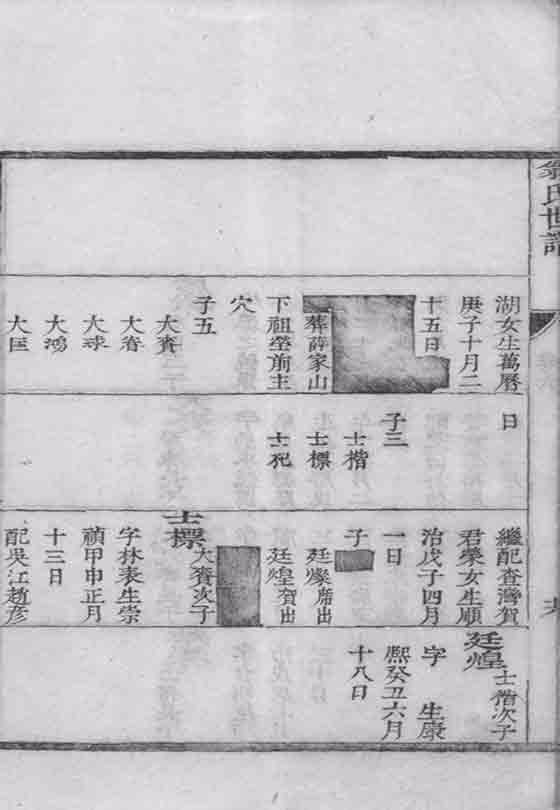 翁氏世譜
湖女生萬曆
庚子十月二
十五日
葬薛家山
下祖塋前主
穴
子五
大賚
大眷
大球
大鴻
大匡
日
子三
士楷
士標
士𥘵
繼配查灣賀
君榮女生順
治戊子四月
一日
子
廷燦席出
廷煌賀出
士標
大賚次子
字林表生崇
禎甲申正月
十三日
配吳江趙彦
廷煌
士楷次子
字 生康
熙癸丑六月
十八日